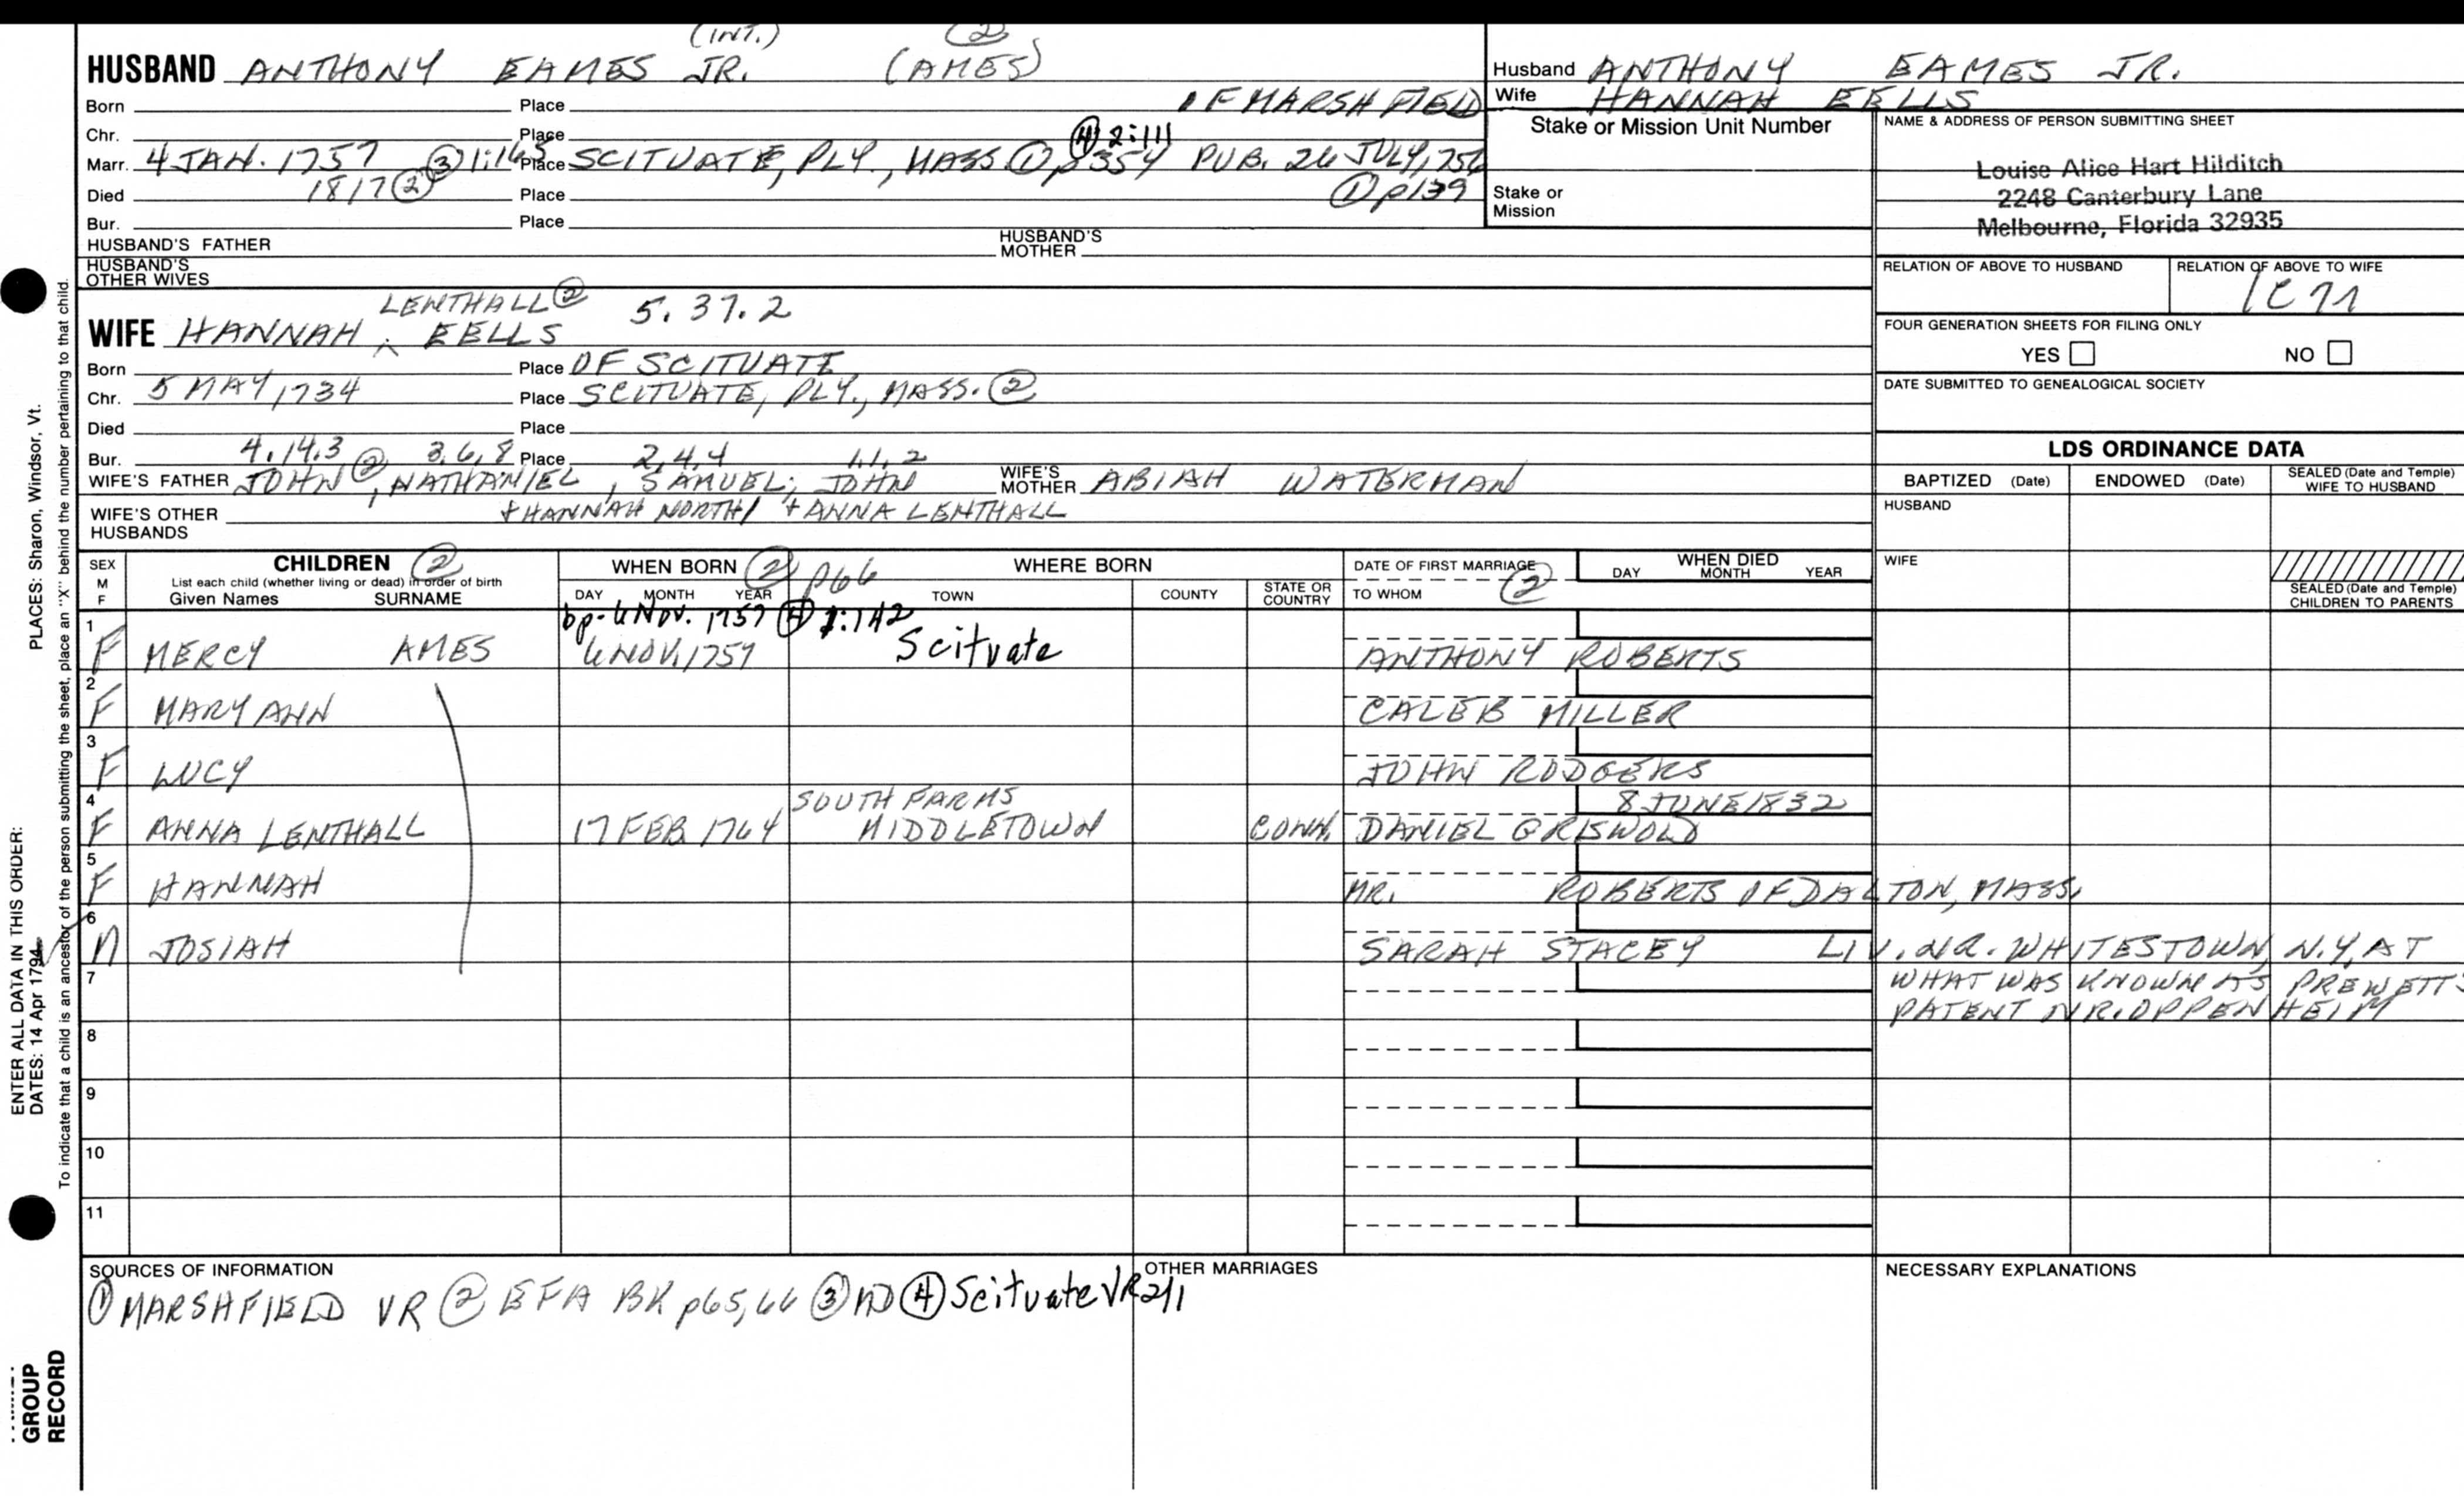 (INT.) ②
HUSBAND ANTHONY EAMES JR. (AMES)
Born Place OF MARSHFIELD
Chr. Place ④ 2:111
Marr. 4 JAN. 1757 ③ 1:165 Place SCITUATE, PLY., MASS. ① p354 PUB. 26 JULY, 1756
Died 1817 ② Place ① p139
Bur. Place
HUSBAND'S FATHER HUSBAND'S MOTHER
HUSBAND'S OTHER WIVES
Husband ANTHONY EAMES JR.
Wife HANNAH EELLS
Stake or Mission Unit Number
Stake or Mission
NAME & ADDRESS OF PERSON SUBMITTING SHEET
Louise Alice Hart Hilditch
2248 Canterbury Lane
Melbourne, Florida 32935
RELATION OF ABOVE TO HUSBAND RELATION OF ABOVE TO WIFE
FOUR GENERATION SHEETS FOR FILING ONLY
YES NO
DATE SUBMITTED TO GENEALOGICAL SOCIETY
LENTHALL ② 5.37.2
WIFE HANNAH ^ EELLS
Born Place OF SCITUATE
Chr. 5 MAY, 1734 Place SCITUATE, PLY., MASS. ②
Died Place
Bur. 4.14.3 3,6,8 Place 2,4,4 1.1.2
WIFE'S FATHER JOHN ②, NATHANIEL, SAMUEL, JOHN WIFE'S MOTHER ABIAH WATERMAN
WIFE'S OTHER HUSBANDS + HANNAH NORTH / + ANNA LENTHALL
LDS ORDINANCE DATA
BAPTIZED (Date) ENDOWED (Date) SEALED (Date and Temple) WIFE TO HUSBAND
HUSBAND
WIFE
SEALED (Date and Temple) CHILDREN TO PARENTS
SEX M F CHILDREN ② WHEN BORN ② p66 WHERE BORN DATE OF FIRST MARRIAGE ② WHEN DIED
List each child (whether living or dead) in order of birth
Given Names SURNAME DAY MONTH YEAR TOWN COUNTY STATE OR COUNTRY TO WHOM DAY MONTH YEAR
1 bp- 6 Nov. 1757 ④ 1:142
F MERCY AMES 6 NOV. 1757 Scituate ANTHONY ROBERTS
2
F MARY ANN CALEB MILLER
3
F LUCY JOHN RODGERS
4 SOUTH FARMS 8 JUNE 1832
F ANNA LENTHALL 17 FEB. 1764 MIDDLETOWN CONN. DANIEL GRISWOLD
5
F HANNAH MR. ROBERTS OF DALTON, MASS.
6
M JOSIAH SARAH STACEY LIV. NR. WHITESTOWN, N.Y. AT
7 WHAT WAS KNOWN AS PREWETTS
PATENT NR. OPPENHEIM
8
9
10
11
SOURCES OF INFORMATION OTHER MARRIAGES NECESSARY EXPLANATIONS
① MARSHFIELD VR ② EFA BK p65,66 ③ MD ④ Scituate VR
ENTER ALL DATA IN THIS ORDER: PLACES: Sharon, Windsor, Vt.
DATES: 14 Apr 1794
To indicate that a child is an ancestor of the person submitting the sheet, place an "X" behind the number pertaining to that child.
GROUP
RECORD